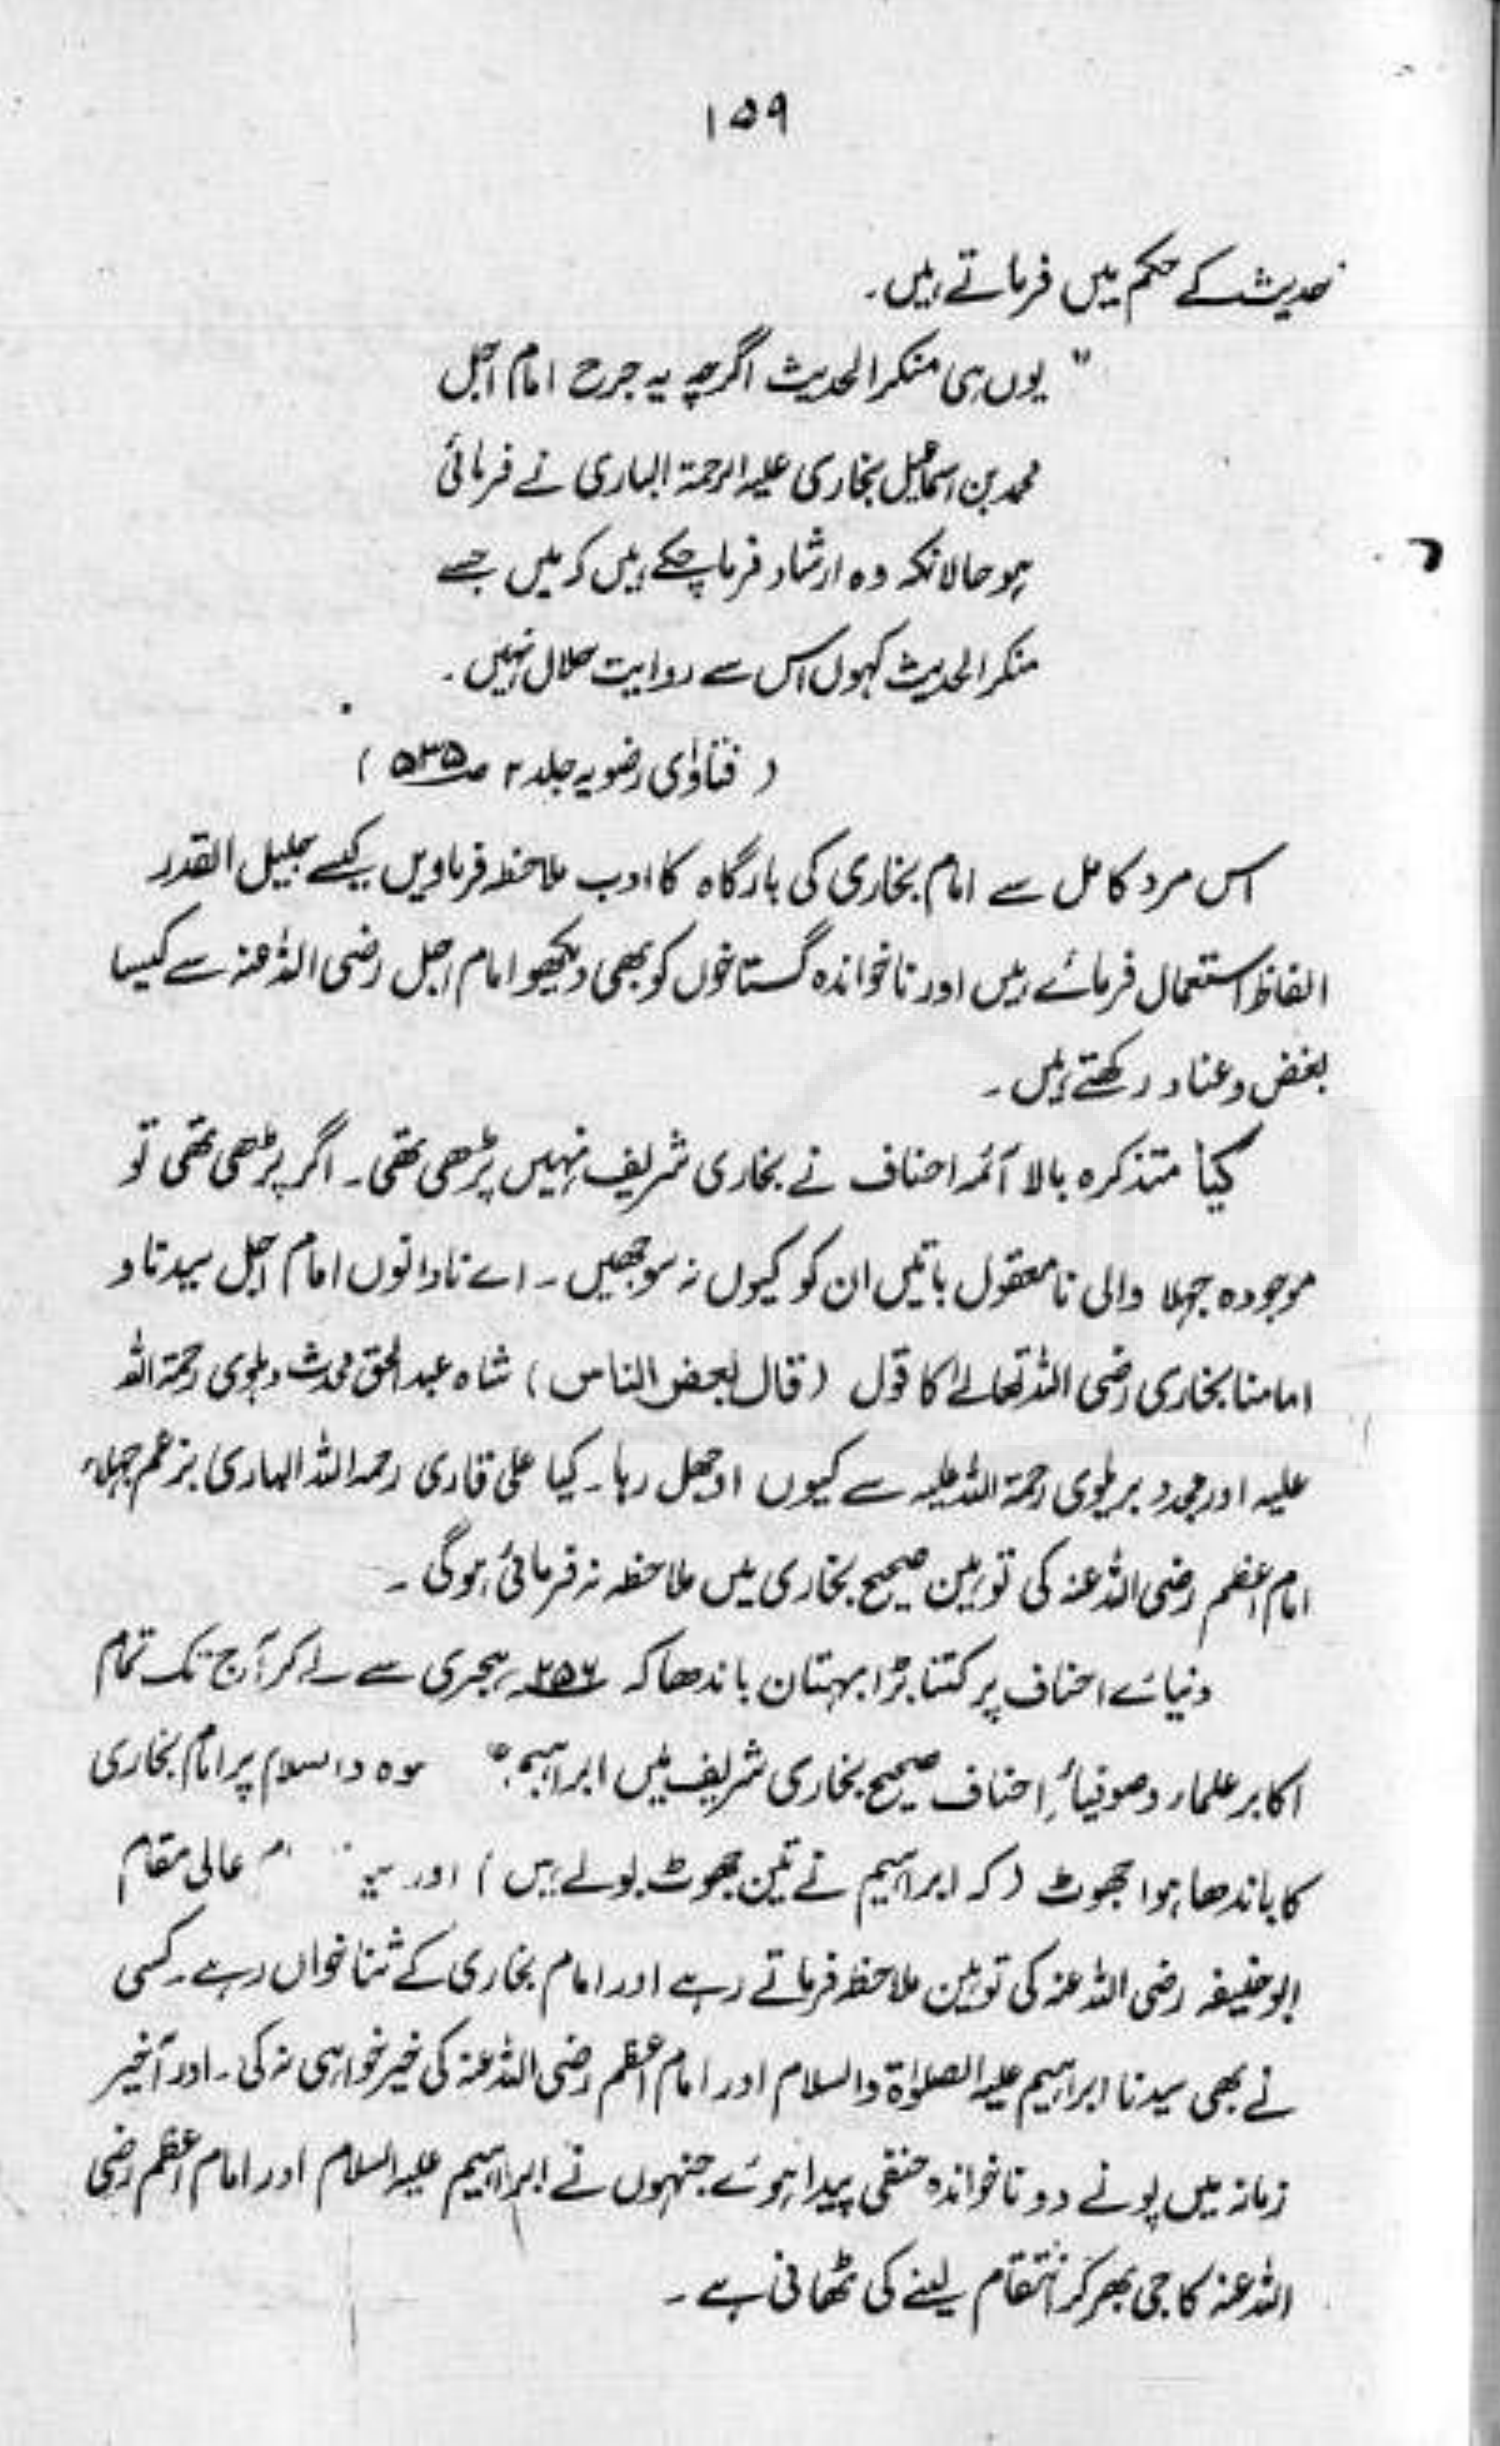 ۱۵۹
حدیث کے حکم میں فرماتے ہیں۔
" یوں ہی منکر الحدیث اگرچہ یہ جرح امام اجل
محمد بن اسماعیل بخاری علیہ الرحمۃ الباری نے فرمائی
ہو حالانکہ وہ ارشاد فرما چکے ہیں کہ میں جسے
منکر الحدیث کہوں اس سے روایت حلال نہیں۔
( فتاوٰی رضویہ جلد ۲ صـ ۵۳۵ )
اس مرد کامل سے امام بخاری کی بارگاہ کا ادب ملاحظہ فرماویں کیسے جلیل القدر
الفاظ استعمال فرمائے ہیں اور ناخواندہ گستاخوں کو بھی دیکھو امام اجل رضی اللہ عنہ سے کیسا
بغض و عناد رکھتے ہیں۔
کیا متذکرہ بالا آئمہ احناف نے بخاری شریف نہیں پڑھی تھی۔ اگر پڑھی تھی تو
موجودہ جہلا والی نامعقول باتیں ان کو کیوں نہ سوجھیں۔ اے نادانوں امام اجل سیدنا و
امامنا بخاری رضی اللہ تعالےٰ کا قول (قال بعض الناس) شاہ عبدالحق محدث دہلوی رحمۃ اللہ
علیہ اور مجدد بریلوی رحمۃ اللہ علیہ سے کیوں اوجھل رہا۔ کیا علی قاری رحمہ اللہ الباری بزعم جہلاء
امام اعظم رضی اللہ عنہ کی توہین صحیح بخاری میں ملاحظہ نہ فرمائی ہوگی۔
دنیائے احناف پر کتنا بڑا بہتان باندھا کہ ۲۵۶ ہجری سے لے کر آج تک تمام
اکابر علماء و صوفیاءِ احناف صحیح بخاری شریف میں ابراہیم وہ والسلام پر امام بخاری
کا باندھا ہوا جھوٹ (کہ ابراہیم نے تین جھوٹ بولے ہیں) اور عالی مقام
ابوحنیفہ رضی اللہ عنہ کی توہین ملاحظہ فرماتے رہے اور امام بخاری کے ثنا خواں رہے۔ کسی
نے بھی سیدنا ابراہیم علیہ الصلوٰۃ والسلام اور امام اعظم رضی اللہ عنہ کی خیر خواہی نہ کی۔ اور آخیر
زمانہ میں پونے دو ناخواندہ حنفی پیدا ہوئے جنہوں نے ابراہیم علیہ السلام اور امام اعظم رضی
اللہ عنہ کا جی بھر کر انتقام لینے کی ٹھانی ہے۔